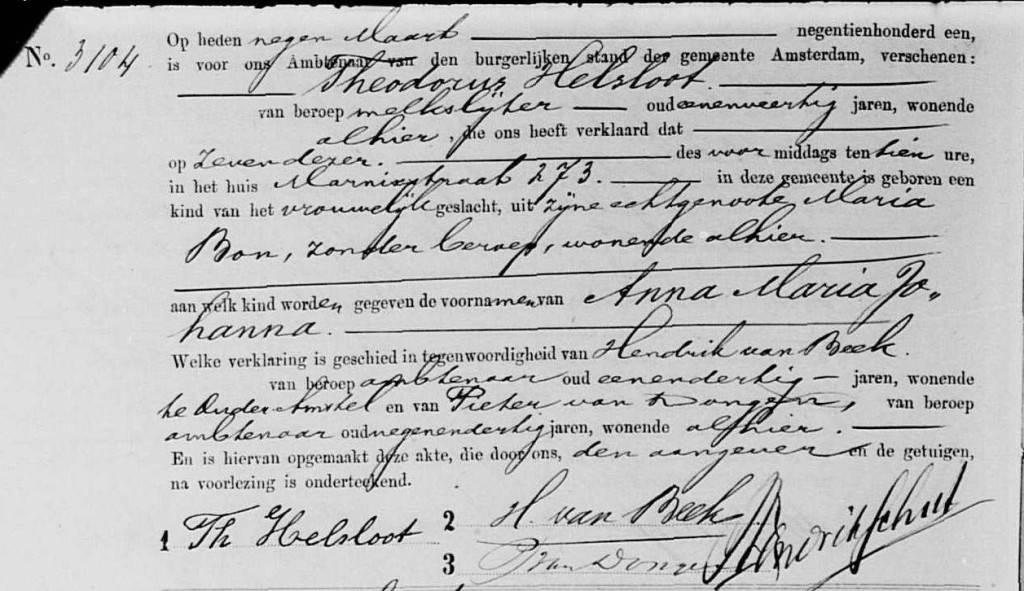 Op heden negen Maart negentienhonderd een,
No. 3104 is voor ons Ambtenaar van den burgerlijken stand der gemeente Amsterdam, verschenen:
Theodorus Helsloot.
van beroep melkslijter oud eenenveertig jaren, wonende
alhier, die ons heeft verklaard dat
op zeven dezer. des voor middags ten tien ure,
in het huis Marnixstraat 273. in deze gemeente is geboren een
kind van het vrouwelijk geslacht, uit zijne echtgenoote Maria
Bon, zonder beroep, wonende alhier.
aan welk kind worden gegeven de voornamen van Anna Maria Jo„
hanna.
Welke verklaring is geschied in tegenwoordigheid van Hendrik van Beek.
van beroep ambtenaar oud eenendertig jaren, wonende
te Ouder Amstel en van Pieter van Dongen, van beroep
ambtenaar oud negenendertig jaren, wonende alhier.
En is hiervan opgemaakt deze akte, die door ons, den aangever en de getuigen,
na voorlezing is onderteekend.
1 Th Helsloot 2 H. van Beek Hendrik Schut
3 P van Dongen